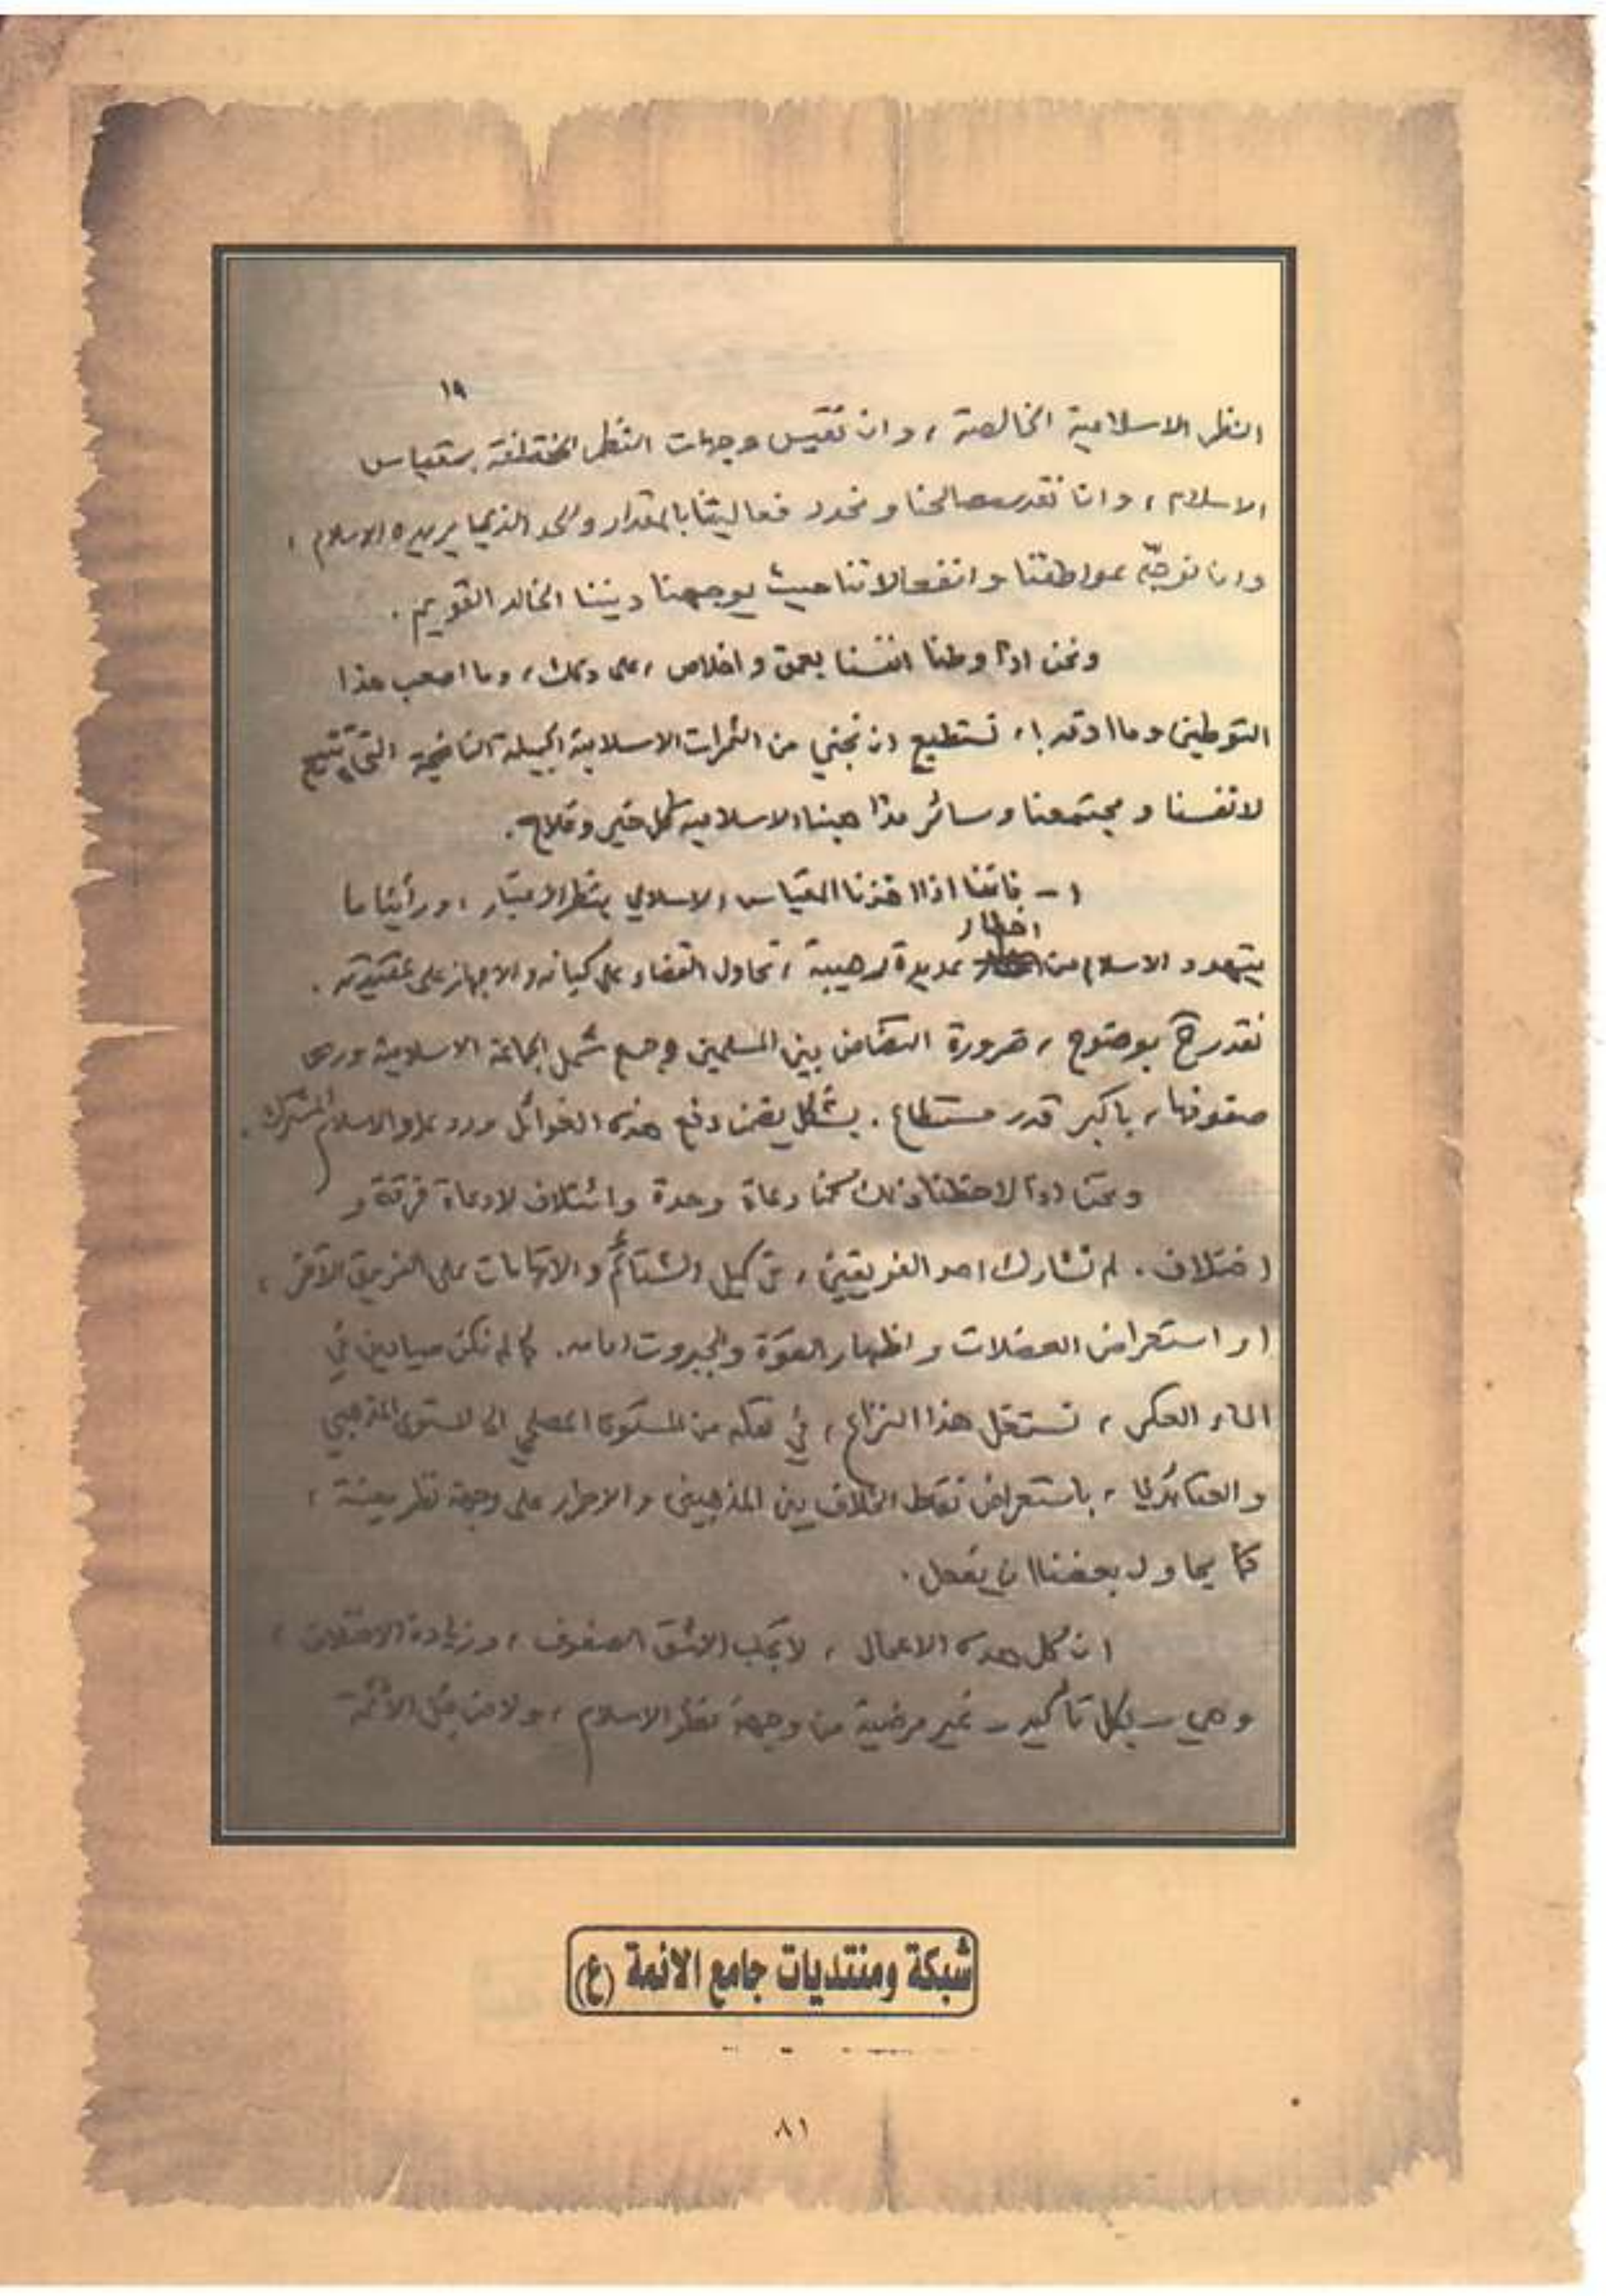 ١٩
النظر الاسلامية الخالصة ، وان نقيس وجهات النظر المختلفة بمقياس
الاسلام ، وان نقدر مصالحنا و نحدد فعاليتنا بالمقدار والحد الذي يريده الاسلام ،
وان نوجّه عواطفنا و انفعالاتنا حيث يوجهنا ديننا الخالد القويم .
ونحن اذا وطنا انفسنا بعمق و اخلاص ، على ذلك ، وما اصعب هذا
التوطين وما ادقه ! ، نستطيع ان نجني من الثمرات الاسلامية الجميلة الناضجة التي تنتج
لانفسنا و مجتمعنا وسائر مذاهبنا الاسلامية كل خير وفلاح .
١ - فاننا اذا اخذنا المقياس الاسلامي بنظر الاعتبار ، ورأينا ما
اخطار
يتهدد الاسلام من عديدة رهيبة ، تحاول القضاء على كيانه والاجهاز على عقيدته .
نقدر بوضوح ، ضرورة التضامن بين المسلمين وجمع شمل الجماعة الاسلامية ورص
صفوفها ، باكبر قدر مستطاع . بشكل يضمن دفع هذه الغوائل ورد عدو الاسلام المشترك .
ونحن اذا لاحظنا ذلك كنا دعاة وحدة وائتلاف لا دعاة فرقة و
اختلاف . لم نشارك احد الفريقين ، من كيل الشتائم والاتهامات على الفريق الآخر ،
او استعراض العضلات و اظهار القوة والجبروت امامه . كما لم نكن صيادين في
الماء العكر ، نستغل هذا النزاع ، في نقله من المستوى المصلحي الى المستوى المذهبي
و العقائدي ، باستعراض نقاط الخلاف بين المذهبين والاصرار على وجهة نظر معينة ،
كما يحاول بعضنا ان يفعل .
ان كل هذه الاعمال ، لا تجلب الا شق الصفوف ، وزيادة الاختلاف ،
وهي - بكل تأكيد - غير مرضية من وجهة نظر الاسلام ، ولا من قبل الأئمة
شبكة ومنتديات جامع الائمة (ع)
٨١